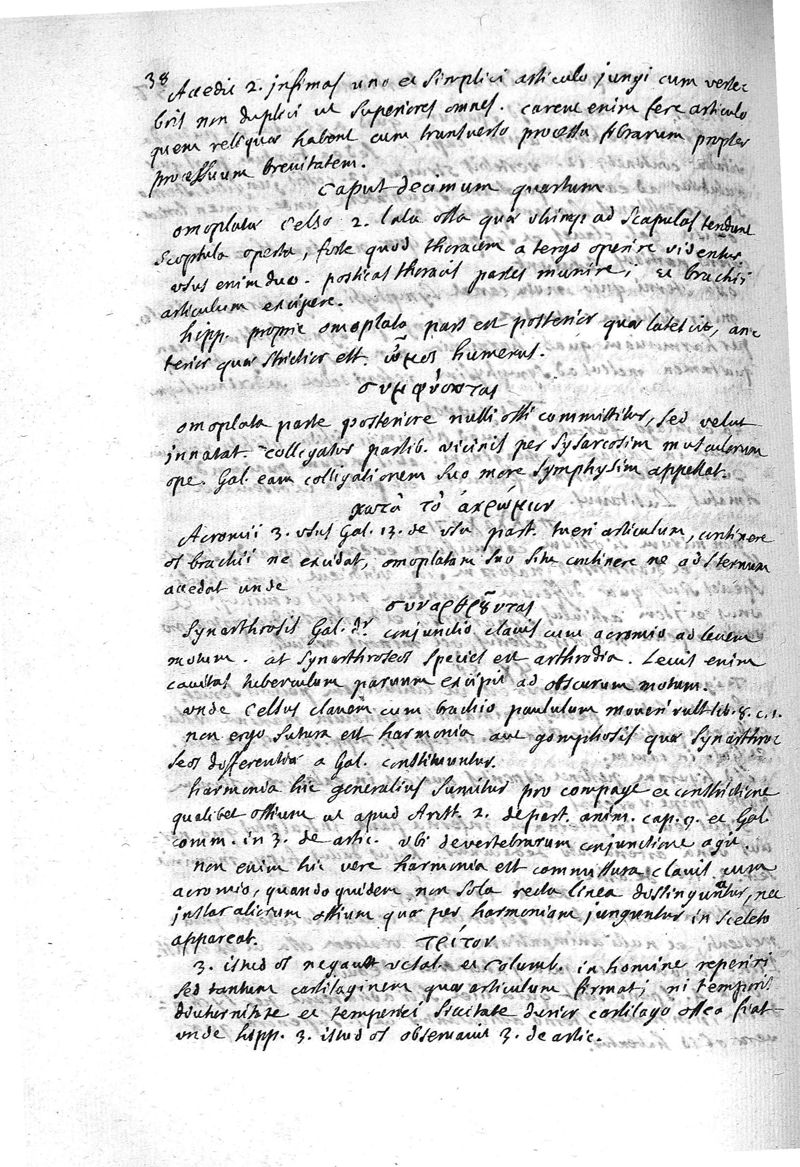 38
Accedit 2. infimas uno et simplici articulo jungi cum verte
bris non duplici ut superiores omnes. carent enim fere articulo
quem reliquæ habent cum transverso processu fibrarum propter
processuum brevitatem.
Caput decimum quartum
omoplatæ Celso 2. lata ossa quæ ad scapulas tendunt
Scoptula operta, forte quod thoracem a tergo operire videntur
usus enim duo. posticas thoracis partes munire; et brachii
articulum excipere.
hipp. proprie omoplata pars est posterior quæ latescit, an
terior quæ strictior est. ὦμος humerus.
συμφύοντας
omoplata parte posteriore nulli ossi committitur, sed velut
innatat. colligatur partib. vicinis per sysarcosim musculorum
ope. Gal. eam colligationem suo more symphysim appellat.
κατὰ τὸ ἀκρώμιον
Acromii 3. usus Gal. 13. de usu part. tueri articulum, continere
os brachii ne excidat, omoplatam suo situ continere ne ad sternum
accedat unde
συναρθροῦνται
Synarthrosis Gal. dr. conjunctio clavis cum acromio ad levem
motum. at synarthroseos species est arthrodia. Levis enim
cavitas tuberculum parvum excipit ad obscurum motum.
unde Celsus clavem cum brachio paululum moveri vult lib. 8. c. 1.
non ergo sutura est harmonia aut gomphosis quæ synarthro
seos differentiæ a Gal. constituuntur.
harmonia hic generalius sumitur pro compage et constrictione
qualibet ossium ut apud Arist. 2. de part. anim. cap. 9. et Gal.
comm. in 3. de artic. ubi de vertebrarum conjunctione agit.
non enim hic vere harmonia est commissura clavis cum
acromio, quandoquidem non sola recta linea distinguatur, nec
instar aliorum ossium quæ per harmoniam junguntur in sceleto
appareat.
τρίτον
3. istud os negant vesal. et Columb. in homine reperiri
sed tantum cartilaginem quæ articulum firmat; ni temporis
diuturnitate et temperiei siccitate durior cartilago ossea fiat
unde hipp. 3. istud os observavit 3. de artic.